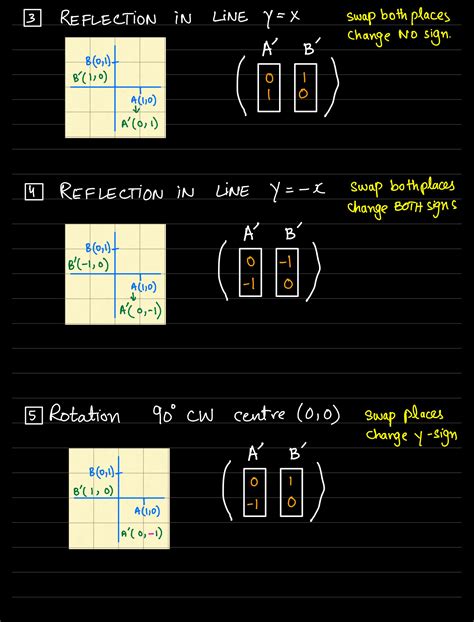 3 REFLECTION in LINE y=x
swap both places
change NO sign.
B(0,1)
B'(1,0)
A(1,0)
A'(0,1)
A' B'
0 1
1 0
4 REFLECTION in LINE y=-x
swap both places
change BOTH signs
B(0,1)
B'(-1,0)
A(1,0)
A'(0,-1)
A' B'
0 -1
-1 0
5 Rotation 90° CW centre (0,0)
swap places
change y-sign
B(0,1)
B'(1,0)
A(1,0)
A'(0,-1)
A' B'
0 1
-1 0